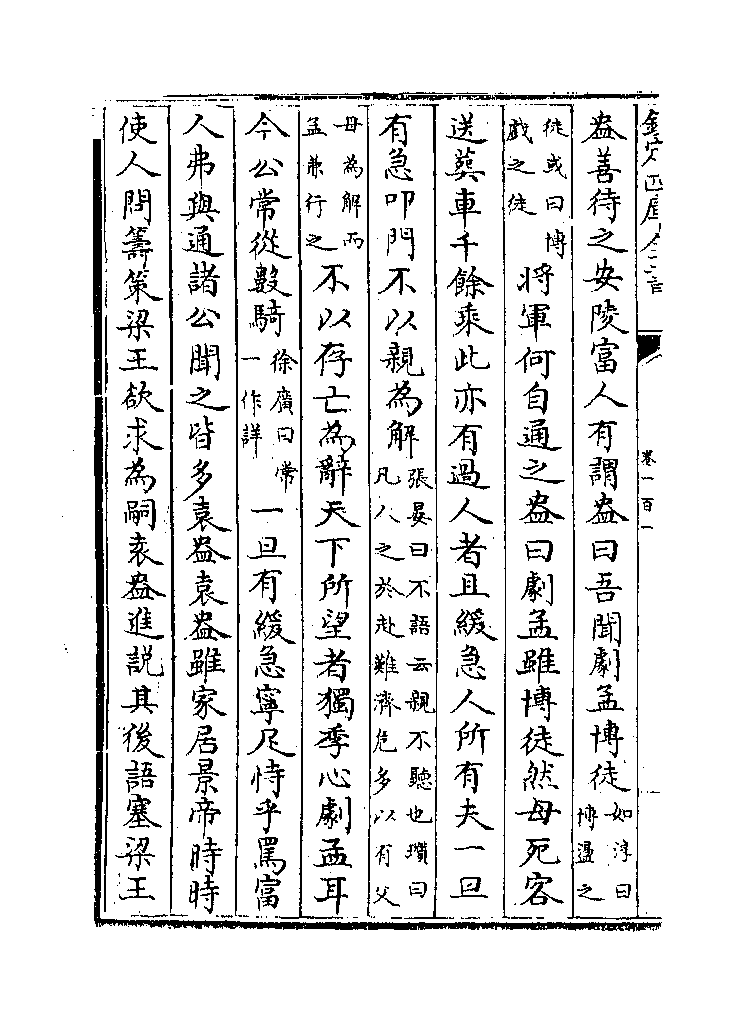 欽定四庫全書
卷一百一
盎善待之安陵富人有謂盎曰吾聞劇孟博徒如淳曰博盪之
徒或曰博戲之徒將軍何自通之盎曰劇孟雖博徒然母死客
送葬車千餘乘此亦有過人者且緩急人所有夫一旦
有急叩門不以親為解張晏曰不語云親不聽也瓚曰凡人之於赴難濟危多以有父
母為解而孟兼行之不以存亡為辭天下所望者獨季心劇孟耳
今公常從數騎徐廣曰常一作詳一旦有緩急寧足恃乎罵富
人弗與通諸公聞之皆多袁盎袁盎雖家居景帝時時
使人問籌策梁王欲求為嗣袁盎進說其後語塞梁王